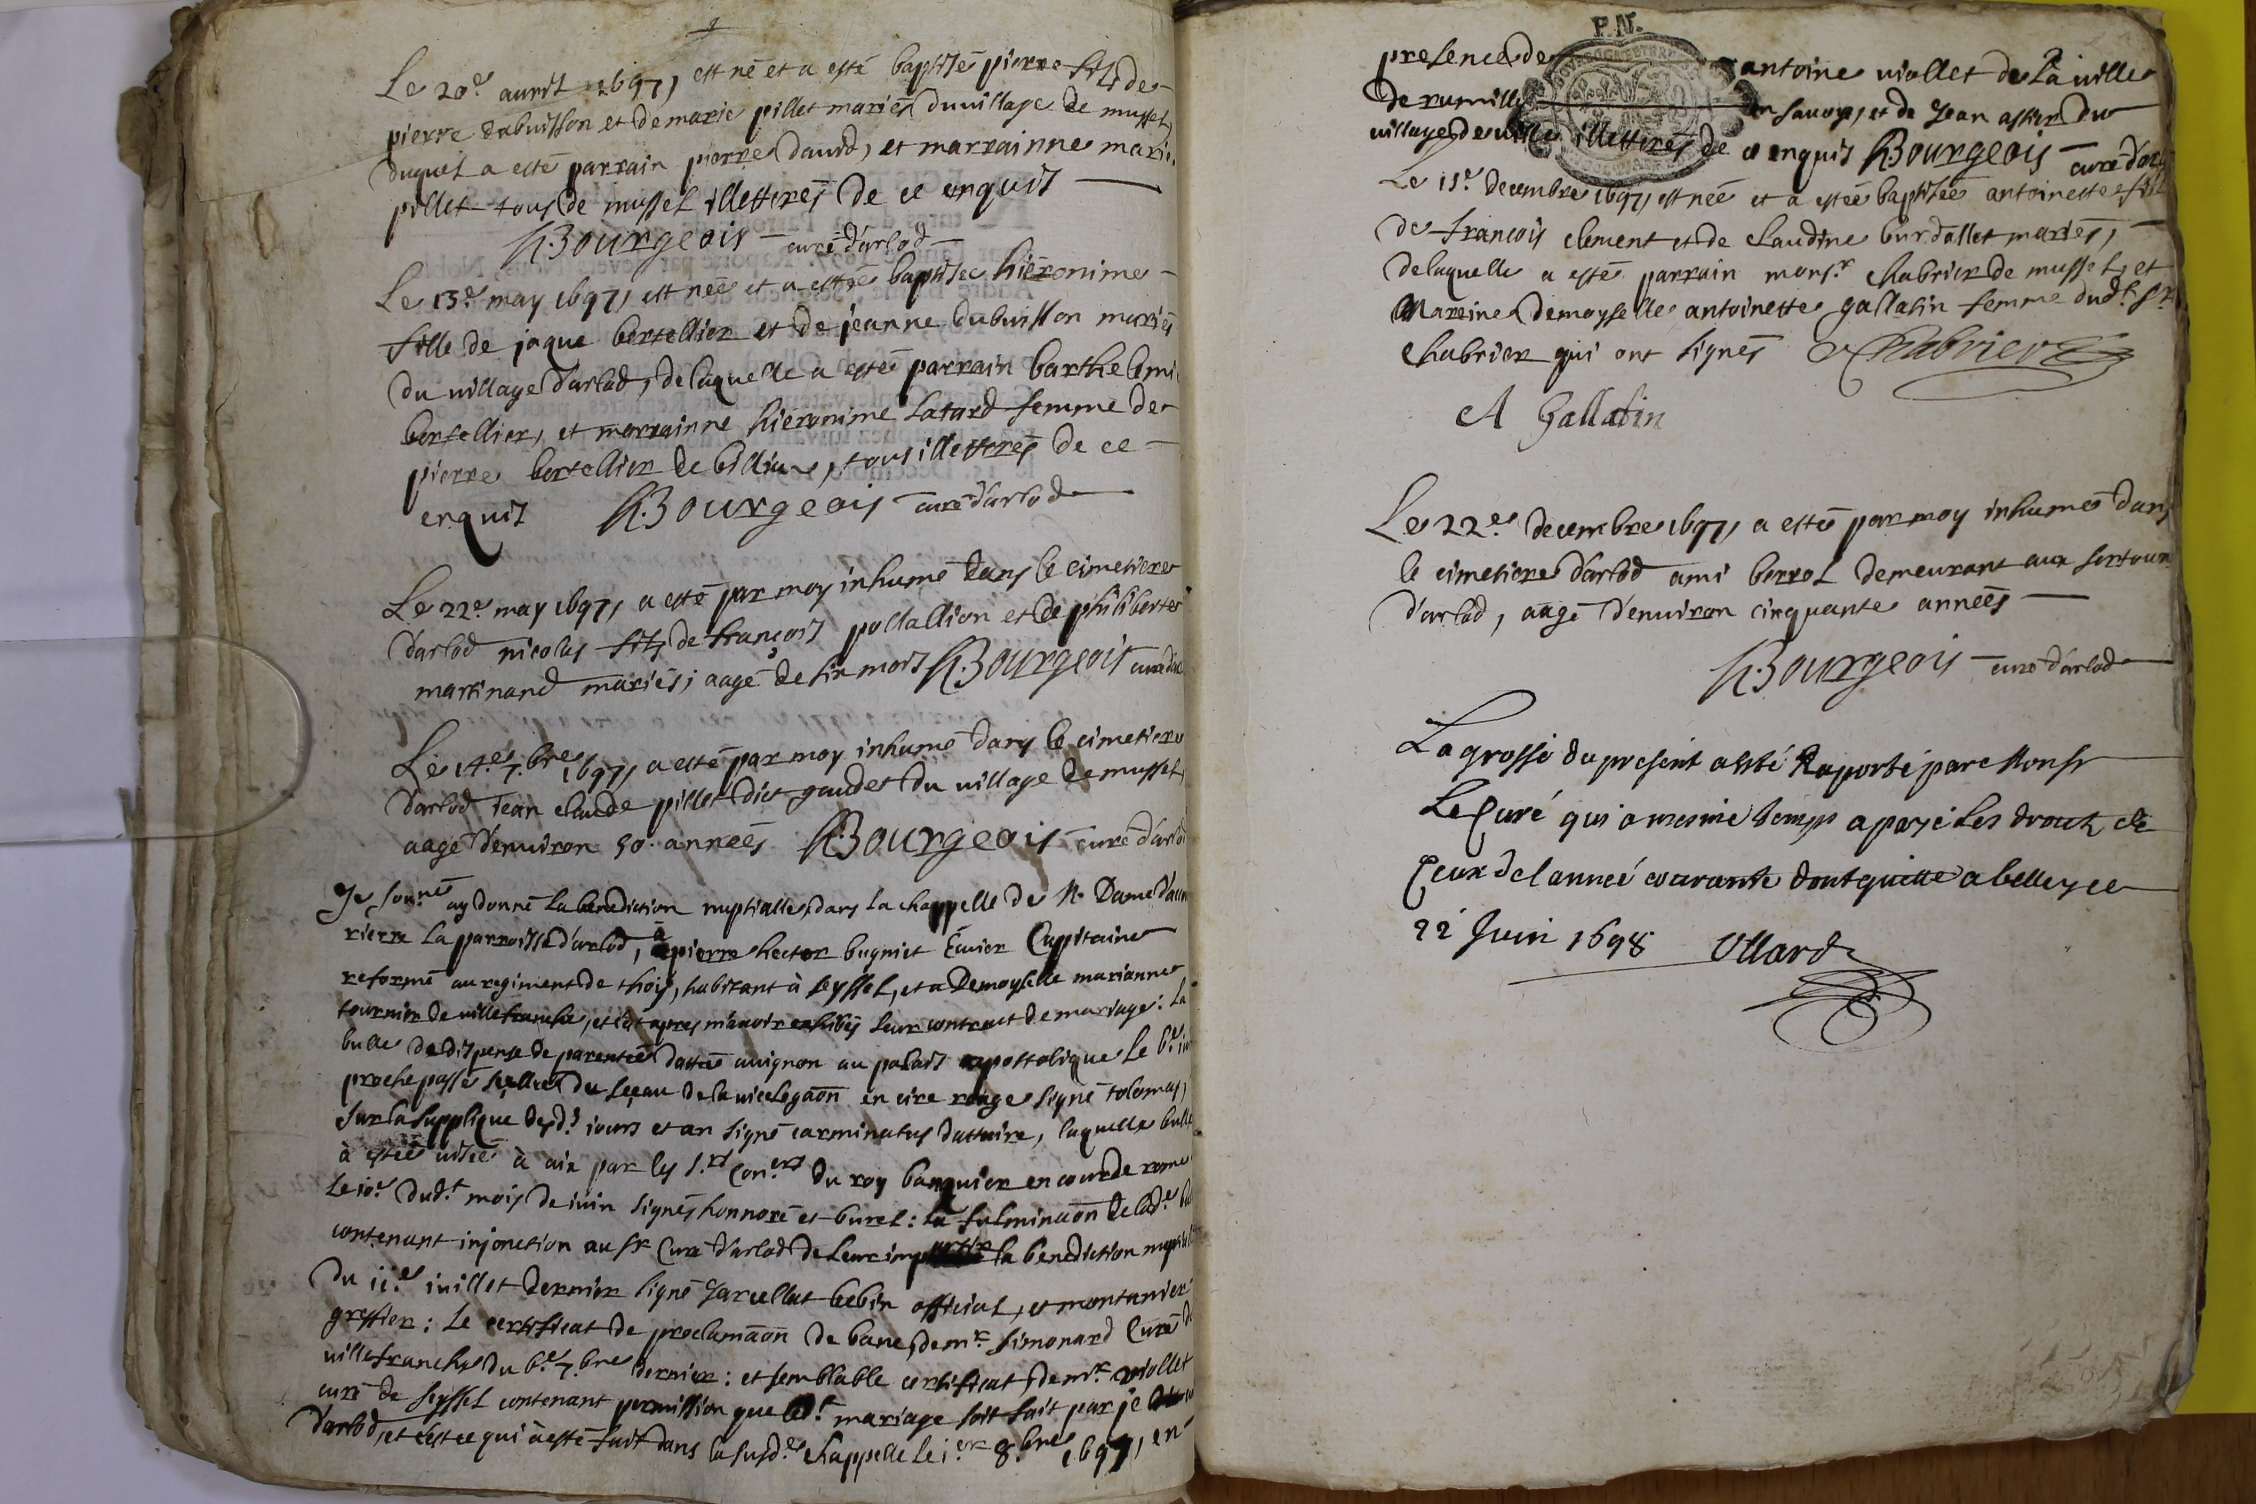 Le 20.e avril 1697, est né et a esté baptisé pierre fils de
pierre dubuisson et de marie pillet mariés du village de mussel,
duquel a esté parrain pierre david, et marrainne marie
pillet tous de mussel illetterés de ce enquis
Bourgeois curé d'arlod
Le 13.e may 1697, est née et a estée baptisée hieronime
fille de jaque bertellier et de jeanne dubuisson mariés
du village d'arlod, de laquelle a esté parrain barthelemi
bertellier, et marrainne hieronime latard femme de
pierre bertellier de billia, tous illetterés de ce
enquis Bourgeois curé d'arlod
Le 22.e may 1697, a esté par moy inhumé dans le cimetiere
d'arlod nicolas fils de françois pollallion et de philiberte
martinand mariés, aagé de six mois Bourgeois curé d'ar
Le 14.e 7.bre 1697, a esté par moy inhumé dans le cimetiere
d'arlod Jean claude pillet dict gaudet du village de mussel,
aagé d'environ 50. années Bourgeois curé d'arlod
Je sou.né ay donné la benediction nuptialle, dans la chappelle de N. Dame
rierre la parroisse d'arlod, à pierre hector bugniet Ecuier Capitaine
reformé au regiment de thoy, habitant à seyssel, et a Demoyselle marianne
tournier de villefranche, et c'est apres m'avoir exhibés leur contract de mariage: la
bulle de dispense de parentée dattée avignon au palais apostolique le 6.e
proche passé scellée du sceau de la vicelegaõn en cire rouge signé tolomas,
sur la supplique desd.s jours et an signé carminatus dattaire, laquelle bulle
à estée visée à aix par les s.rs con.ers du roy banquier en cour de rome
le 10.e dud.t mois de juin signés honnoré et buret: la fulminaõn de lad.e
contenant injonction au sr Curé d'arlod de leur impartir la benediction nuptial
du 11.e juillet dernier signé Jarcellat bebin official, et montanier
greffier: le certificat de proclamaõn de bans, de m.r simonard Curé de
villefranche du 6.e 7.bre dernier: et semblable certificat de m.r viollet
curé de seyssel contenant permission que led.t mariage soit fait par je
d'arlod, et c'est ce qui à esté fait dans la susd.e chappelle le 1.er 8.bre 1697, en
P.N.
presence de antoine viollet de la ville
de rumilly en savoye, et de Jean astier du
village de ville illetterés de ce enquis Bourgeois curé d'arlo
Le 15.e decembre 1697, est née et a estée baptisée antoinette fille
de françois clement et de claudine burdallet mariés,
de laquelle a esté parrain mons.r chabrier de mussel, et
Mareine Demoyselle antoinette gallatin femme dud.t s.r
chabrier qui ont signés Chabrier
A Gallatin
Le 22.e decembre 1697, a esté par moy inhumé dans
le cimetiere d'arlod ami berrot demeurant aux
d'arlod, aagé d'environ cinquante années
Bourgeois curé d'arlod
La grosse du present a esté Raporté par Monsr
Le Curé qui a mesme temps a payé les droits de
Ceux de l'année courante dont quitte a belley ce
22 Juin 1698 Ollard